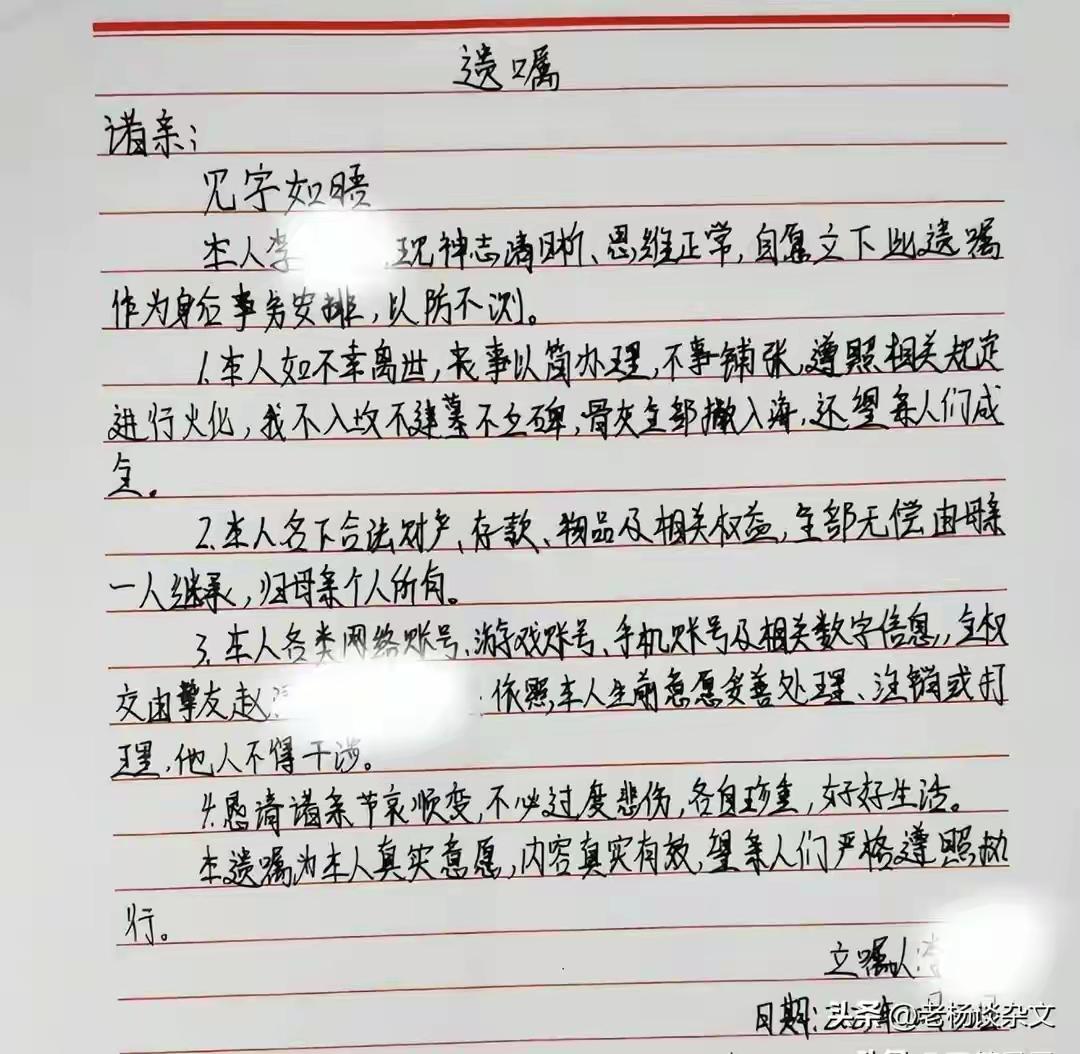 遗嘱
诸亲:
见字如晤
本人李 ,现神志清晰、思维正常,自愿立下此遗嘱
作为身后事务安排,以防不测。
1.本人如不幸离世,丧事以简办理,不事铺张,遵照相关规定
进行火化,我不入坟不建墓不立碑,骨灰全部撒入海,还望亲人们成
全。
2.本人名下合法财产、存款、物品及相关权益,全部无偿由母亲
一人继承,归母亲个人所有。
3.本人各类网络账号、游戏账号、手机账号及相关数字信息,全权
交由挚友赵 :依照本人生前意愿妥善处理、注销或打
理,他人不得干涉。
4.恳请诸亲节哀顺变,不必过度悲伤,各自珍重,好好生活。
本遗嘱为本人真实意愿,内容真实有效,望亲人们严格遵照执
行。
立嘱人:李
日期:
头条 @老杨谈杂文